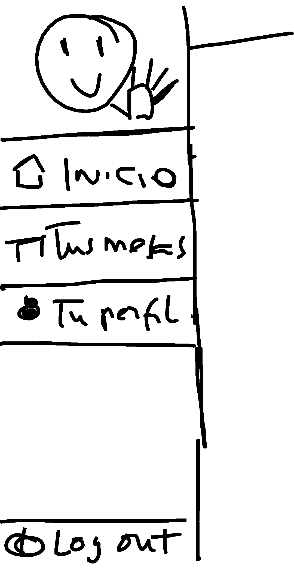 Inicio
Tus mesas
Tu perfil
Log out